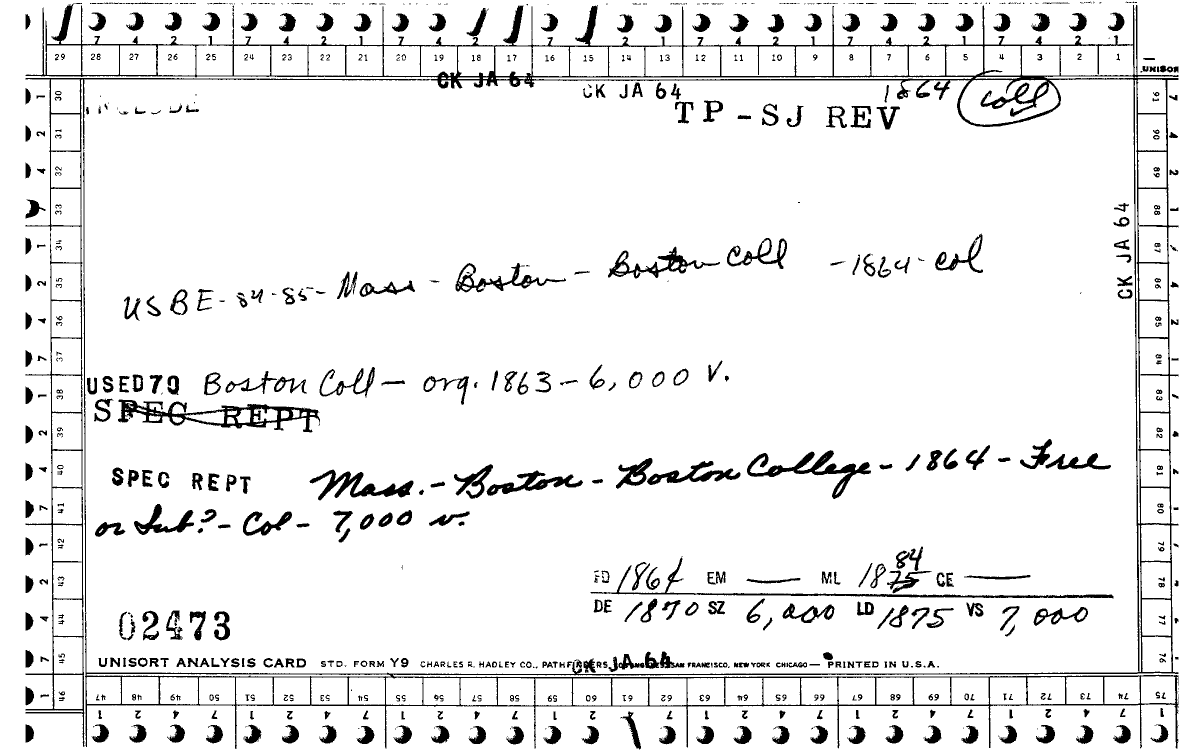 7 4 2 1 7 4 2 1 7 4 2 1 7 4 2 1 7 4 2 1 7 4 2 1 7 4 2 1
29 28 27 26 25 24 23 22 21 20 19 18 17 16 15 14 13 12 11 10 9 8 7 6 5 4 3 2 1
UNISOR
CK JA 64 CK JA 64 1864 coll
INCLUDE TP-SJ REV
CK JA 64
USBE-84-85- Mass - Boston - Boston Coll -1864- col
USED70 Boston Coll- org. 1863-6,000 V.
SPEC REPT
SPEC REPT Mass.- Boston - Boston College- 1864 - Free
or Sub?- Col- 7,000 v.
84
FD 1864 EM — ML 1875 CE —
DE 1870 SZ 6,000 LD 1875 VS 7,000
02473
CK JA 64
UNISORT ANALYSIS CARD STD. FORM Y9 CHARLES R. HADLEY CO., PATHFINDERS, SAN FRANCISCO, NEW YORK CHICAGO— PRINTED IN U.S.A.
30 31 32 33 34 35 36 37 38 39 40 41 42 43 44 45 46
91 90 89 88 87 86 85 84 83 82 81 80 79 78 77 76 75
47 48 49 50 51 52 53 54 55 56 57 58 59 60 61 62 63 64 65 66 67 68 69 70 71 72 73 74